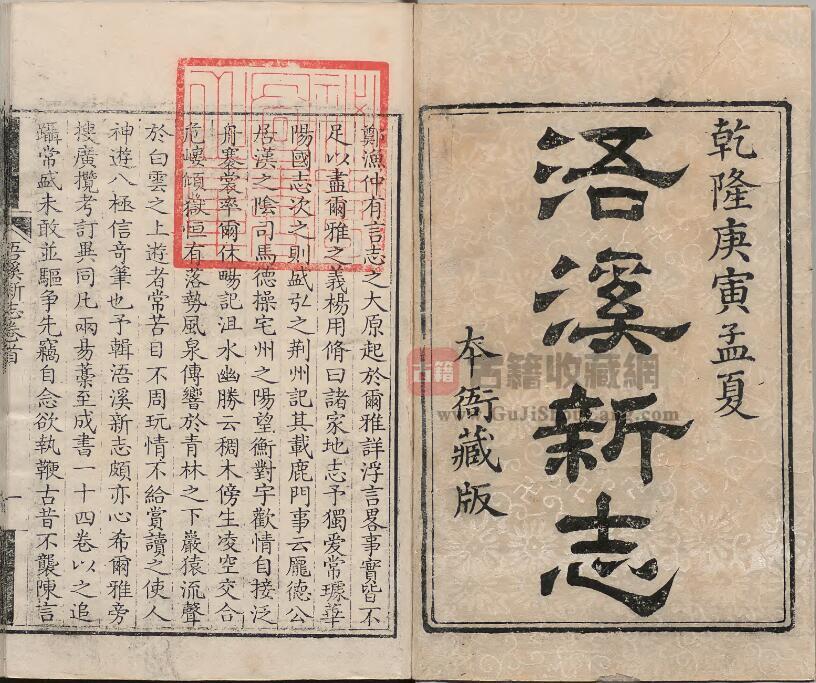 乾隆庚寅孟夏
浯溪新志
本衙藏版
古籍 古籍收藏網
www.GuJiShouCang.com
鄭漁仲有言志之大原起於爾雅詳浮言畧事實皆不
足以盡爾雅之義楊用脩曰諸家地志予獨爱常璩華
陽國志次之則盛弘之荆州記其載鹿門事云龐德公
居漢之陰司馬德操宅州之陽望衡對宇歡情自接泛
舟褰裳率爾休暢記沮水幽勝云稠木傍生凌空交合
危嶁傾嶽恒有落勢風泉傳響於青林之下巖猿流聲
於白雲之上遊者常苦目不周玩情不給賞讀之使人
神遊八極信奇筆也予輯浯溪新志頗亦心希爾雅旁
搜廣攬考訂異同凡兩易藁至成書一十四卷以之追
躡常盛未敢並驅争先竊自念欲執鞭古昔不襲陳言
浯溪新志卷首
一